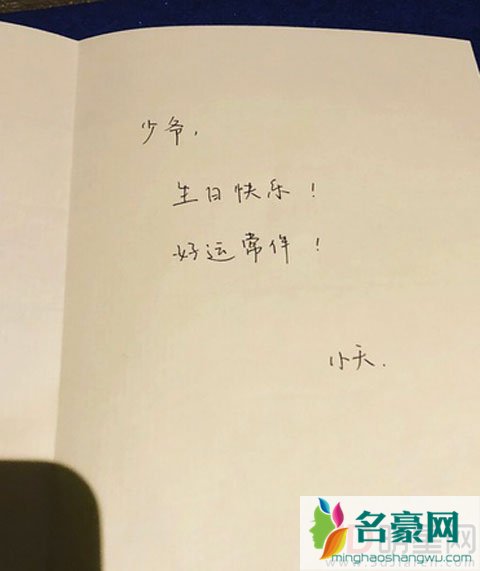 少爷，
生日快乐！
好运常伴！
小天.
名豪网
minghaoshangwu.com